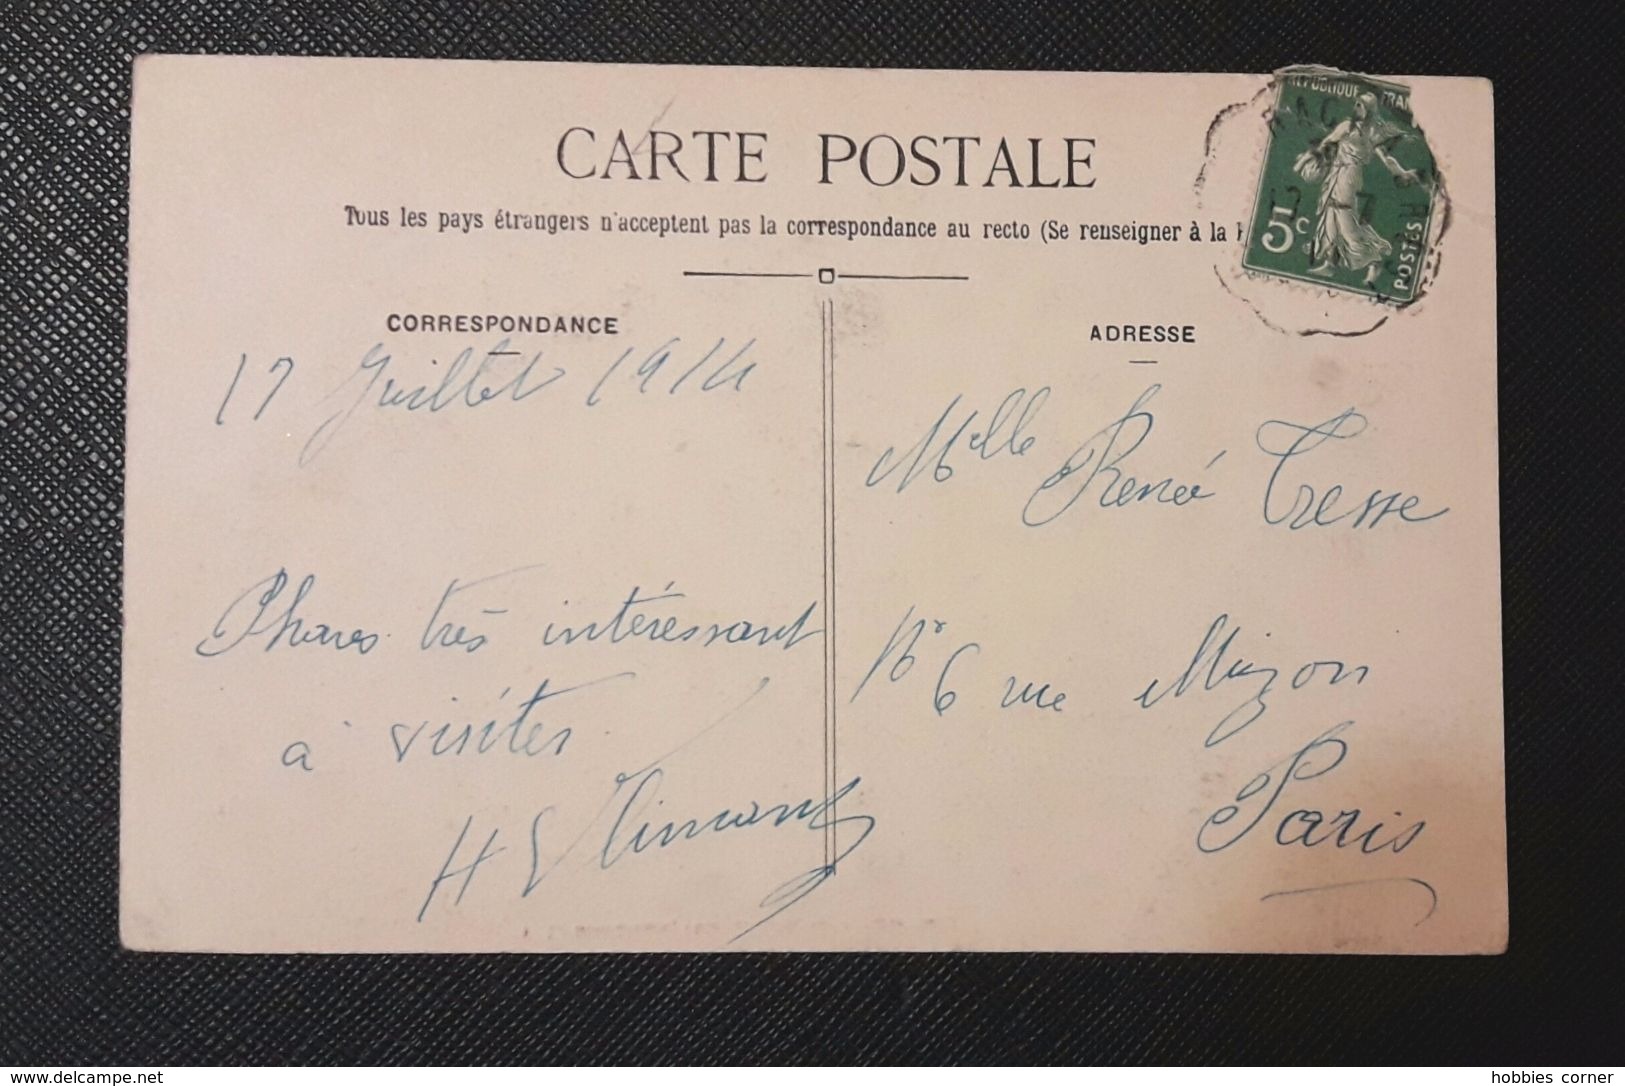 CARTE POSTALE
Tous les pays étrangers n'acceptent pas la correspondance au recto (Se renseigner à la
RÉPUBLIQUE FRA
5c
POSTES
-7
CORRESPONDANCE
ADRESSE
17 Juillet 1914
Mlle Renée Tresse
Phares très intéressant
à visiter
N° 6 rue Mizon
Paris
delcampe.net
hobbies corner